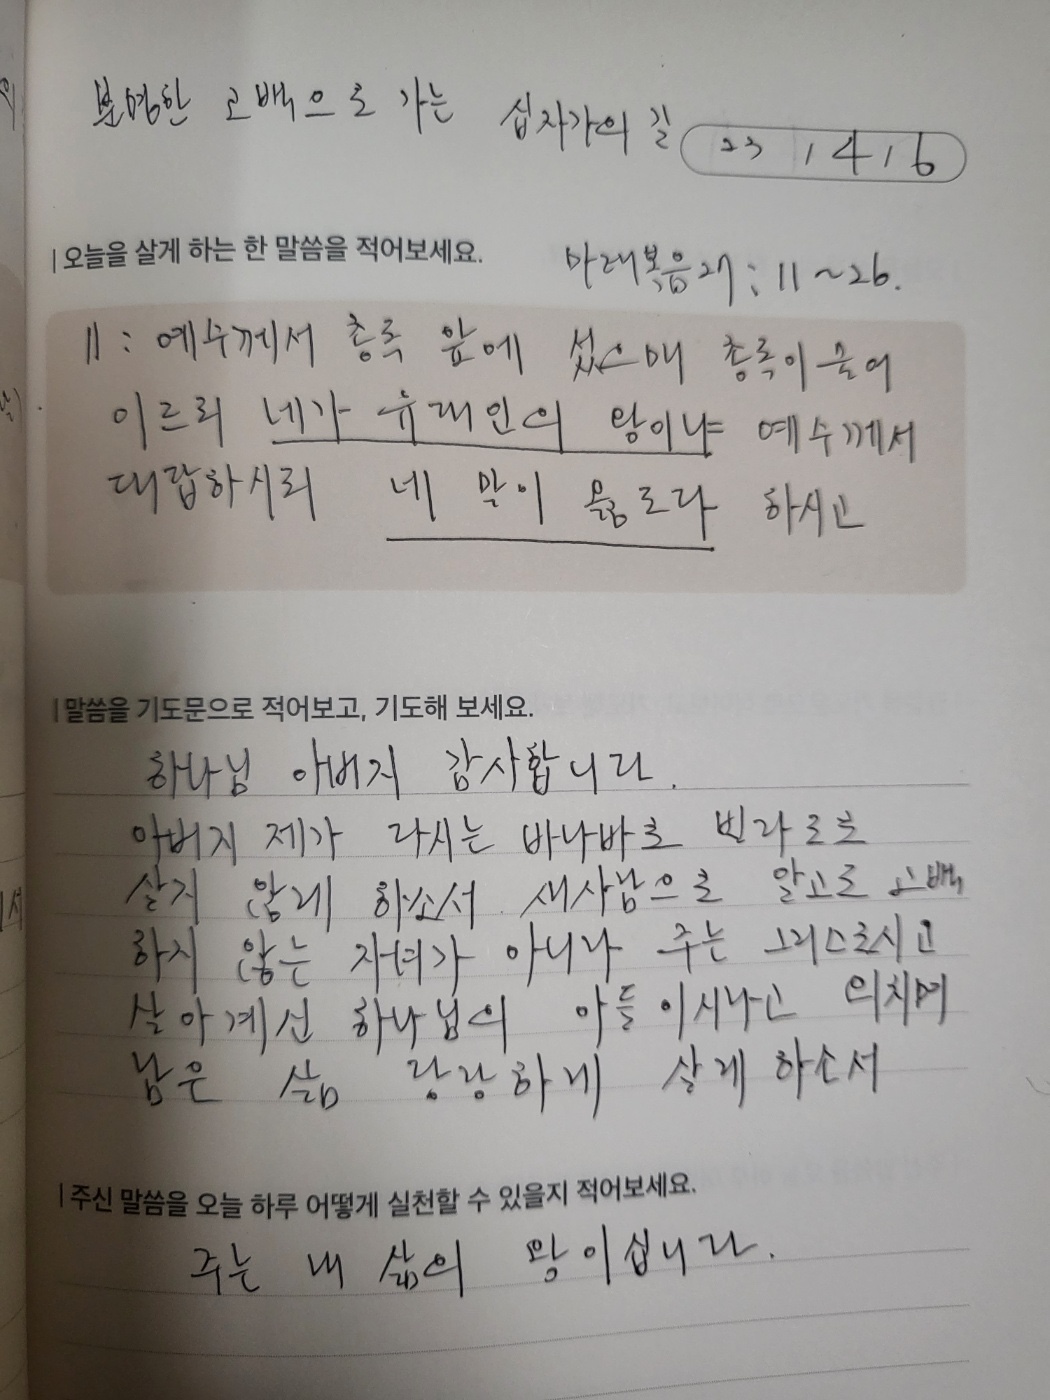 분명한 고백으로 가는 십자가의 길 23 / 4 / 6
오늘을 살게 하는 한 말씀을 적어보세요.
마태복음27:11~26.
11: 예수께서 총독 앞에 섰으매 총독이 물어
이르되 네가 유대인의 왕이냐 예수께서
대답하시되 네 말이 옳도다 하시고
말씀을 기도문으로 적어보고, 기도해 보세요.
하나님 아버지 감사합니다.
아버지 제가 다시는 바나바로 빌라도로
살지 않게 하소서. 새사람으로 알고도 고백
하지 않는 자녀가 아니라 주는 그리스도시고
살아계신 하나님의 아들이시라고 외치며
남은 삶 당당하게 살게 하소서
주신 말씀을 오늘 하루 어떻게 실천할 수 있을지 적어보세요.
주는 내 삶의 왕이십니다.